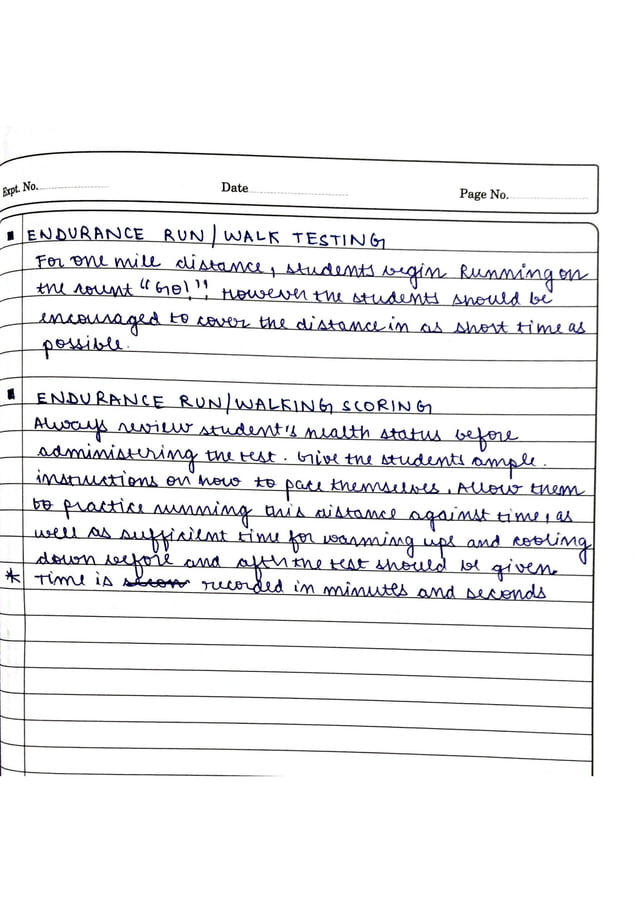 Expt. No.
Date
Page No.
ENDURANCE RUN/WALK TESTING
For one mile distance, students begin Running on
the count "Go!". However the students should be
encouraged to cover the distance in as short time as
possible.
ENDURANCE RUN/WALKING SCORING
Always review student's health status before
administering the test. Give the students ample.
instructions on how to pace themselves. Allow them
to practice running this distance against time, as
well as sufficient time for warming ups and cooling
down before and after the test should be given.
* Time is recorded in minutes and seconds